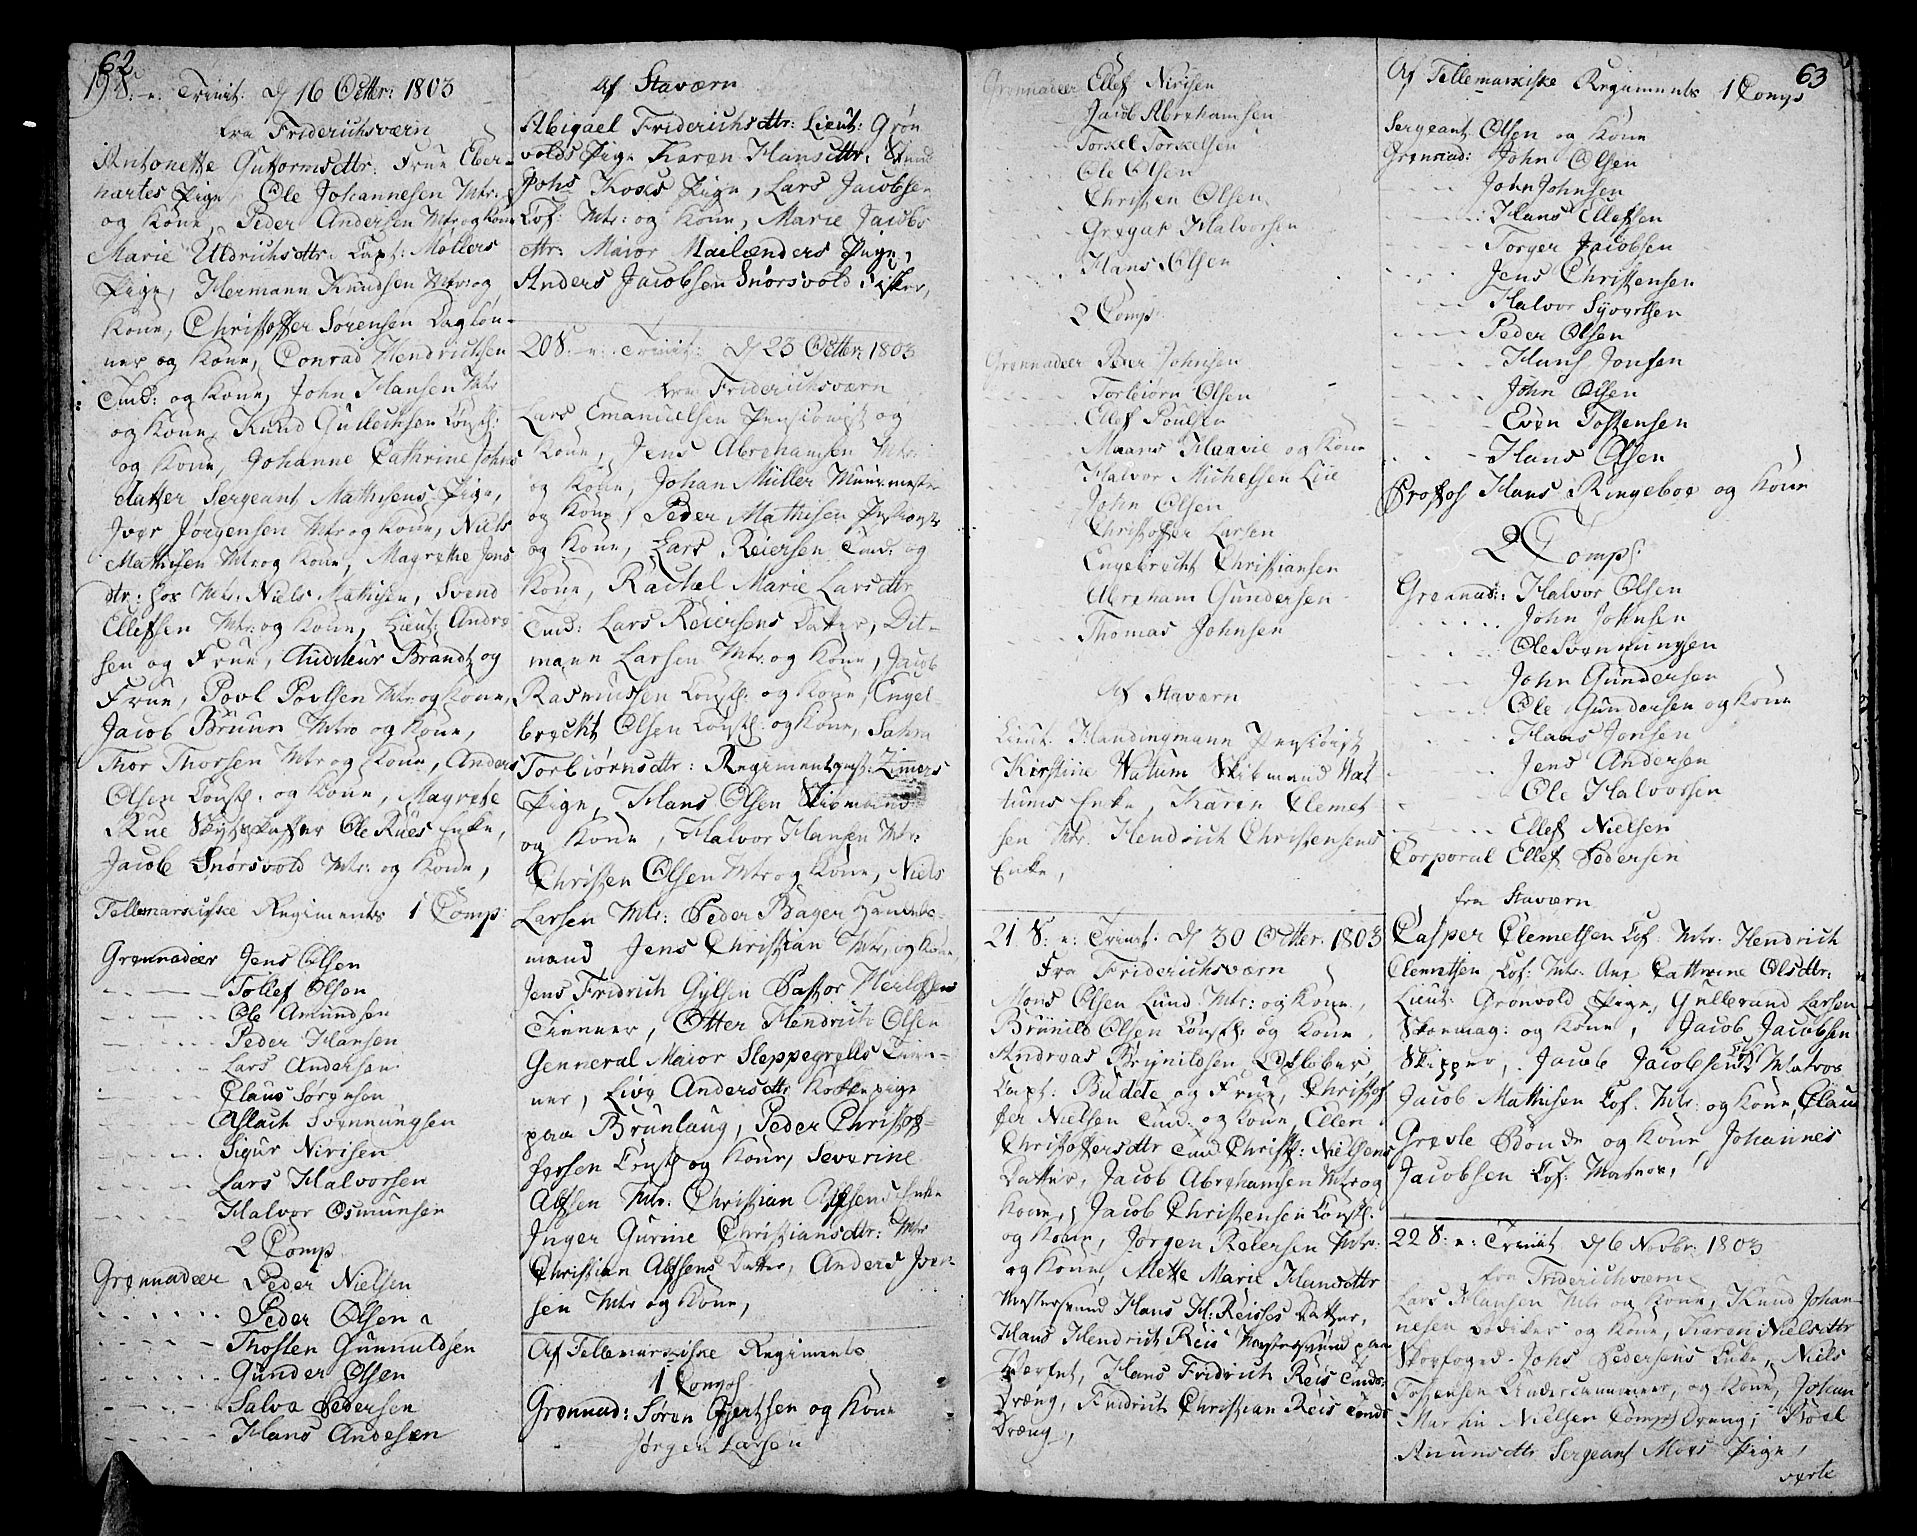 62
19 S: e: Trinit: d 16 Octbr: 1803
fra Friderichsværn
Antonette Gutormsdtr: Frue Eber-
hartes Pige, Ole Johannesen Mtr:
og Kone, Peder Andersen Mtr og Kone
Marie Uldrichsdtr: Capt: Mollers
Pige, Hermann Knudsen Mtr og
Kone, Christoffer Sørensen Daglön-
ner og Kone, Conrad Hendrichsen
Tmd: og Kone, John Hansen Mtr
og Kone, Knud Gulleichsen Const:
og Kone, Johanne Cathrine Johns
datter Sergeant Mathisens Pige,
Iver Jørgensen Mtr og Kone, Niels
Mathisen Mtr og Kone, Magrethe Jens
dtr: hos Mtr: Niels Mathisen, Svend
Ellefsen Mtr: og Kone, Lieut: Andre
sen og Frue, Auditeur Brandt og
Frue, Povl Povlsen Mtr og Kone,
Jacob Bruun Mtro og Kone,
Thor Thorsen Mtr og Kone, Anders
Olsen Const: og Kone, Magrete
Rue Ole Rues Enke,
Jacob Snørsvold Mtr: og Kone,
Tellemarkiske Regiments 1 Comp:
Grønnadeer Jens Olsen
Tollef Olsen
Ole Amundsen
Peder Hansen
Lars Andersen
Claus Sørensen
Aslach Svennungsen
Sigur Nirisen
Lars Halvorsen
Halvor Osmunsen
2 Comp
Grønnadeer Peder Nielsen
Peder Olsen
Thosten Gunnuldsen
Gunder Olsen
Salva Pedersen
Hans Andesen
Af Staværn
Abigael Friderichsdtr: Lieut: Grøn
volds Pige Karen Hansdtr:
Johs Koxs Pige, Lars Jacobsen
Cof: Mtr: og Kone, Marie Jacobs
dtr: Maior Mailænders Pige,
Anders Jacobsen Snørsvold Fisker,
20 S: e: Trinit: d 23 Octbr: 1803
fra Friderichsværn
Lars Emanuelsen Pensionist og
Kone, Jens Abrahamsen Mtr:
og Kone, Johan Müller Muurmester
og Kone, Peder Mathisen
og Kone, Lars Reiersen Tmd: og
Kone, Rachel Marie Larsdtr
Tmd: Lars Reiersens Datter, Dit-
mann Larsen Mtr. og Kone, Jacob
Rasmussen Const: og Kone, Engel-
brecht Olsen Const: og Kone, Sahra
Torbiørnsdtr: Zimers
Pige, Hans Olsen
og Kone, Halvor Hansen Mtr:
Christen Olsen Mtr og Kone, Niels
Larsen Mtr: Peder Bager Handels-
mand Jens Christian Mtr. og Kone,
Jens Fridrich Gylsen Pastor
Tienner, Otter Hendrich Olsen
Genneral Maior Sleppegrells Tien-
ner, Live Andersdtr Kokkepige
paa Brunlaug, Peder Christof-
fersen Const og Kone, Severine
Alfsen Mtr. Christian Alfsens Enke
Inger Gurine Christiansdtr: Mtr
Christian Alfsens Datter, Anders Iver
sen Mtr og Kone,
Af Tellemarkiske Regiments
1 Comps
Grønnad: Søren Gjertsen og Kone
Jørgen Larsen
Grønnadeer Ellef Nirisen
Jacob Abrahamsen
Torkel Torkelsen
Ole Olsen
Christen Olsen
Gregar Halvorsen
Hans Olsen
2 Comps:
Grønnadeer Peder Johnsen
Torbiørn Olsen
Ellef Poulsen
Maans Haavie og Kone
Halvor Michelsen Lie
John Olsen
Christoffer Larsen
Engebrecht Christiansen
Abraham Gundersen
Thomas Johnsen
Af Staværn
Lieut. Handingmann Pensionist
Kirstine Watum Skibmand Wat
tums Enke, Karen Clemet
sen Mtr. Hendrich Christensens
Enke,
21 S: e: Trinit. d 30 Octbr: 1803
Fra Friderichsværn
Mons Olsen Lund Mtr: og Kone,
Brünild Olsen Const: og Kone
Andreas Brynildsen,
Capt: Budde og Frue, Christof
fer Nielsen Tmd: og Kone Ellen
Christoffersdtr Tmd Christf: Nielsens
Datter, Jacob Abrahamsen Mtr og
Kone, Jacob Christensen Const:
og Kone, Jørgen Reiersen Mtr:
og Kone, Mette Marie Hansdtr
Hans H: Reisses Datter,
Hans Hendrich Reis paa
Værfet, Hans Fridrich Reis Tmds:
Dræng, Fridrich Christian Reis Tmds
Dræng,
63
Af Tellemarkiske Regiments 1 Comps
Sergeant Olsen og Kone
Grønnad: John Olsen
John Johnsen
Hans Ellefsen
Torger Jacobsen
Jens Christensen
Halvor Syvertsen
Peder Olsen
Hans Jonsen
John Olsen
Even Tostensen
Hans Olsen
Profos Hans Ringeboe og Kone
2 Comps:
Grønnad: Halvor Olsen
John Johnsen
Ole Svennungsen
John Gundersen
Ole Gundersen og Kone
Hans Jonsen
Jens Andersen
Ole Halvorsen
Ellef Nielsen
Corporal Ellef Pedersen
fra Staværn
Casper Clemetsen Cof: Mtr: Hendrich
Clemetsen Cof: Mtr: Ane Cathrine Olsdtr:
Lieut: Grønvold Pige, Gullerand Larsen
Skoemag: og Kone, Jacob Jacobsen
Skipper, Jacob Jacobsen Cof: Matros
Jacob Mathisen Cof. Mtr: og Kone, Claus
Grevle Bonde og Kone Johannes
Jacobsen Cof: Matros,
22 S: e: Trinit d 6 Novbr: 1803
fra Friderichværn
Lars Hansen Mtr og Kone, Knud Johan-
nesen og Kone, Karen Nielsdtr
Skovfoged Johs Pedersens Enke, Niels
Tostensen Undercannoneer, og Kone, Johan
Martin Nielsen Comps Dreng, Boel
Amunsdtr Sergeant Moes Pige,
verte